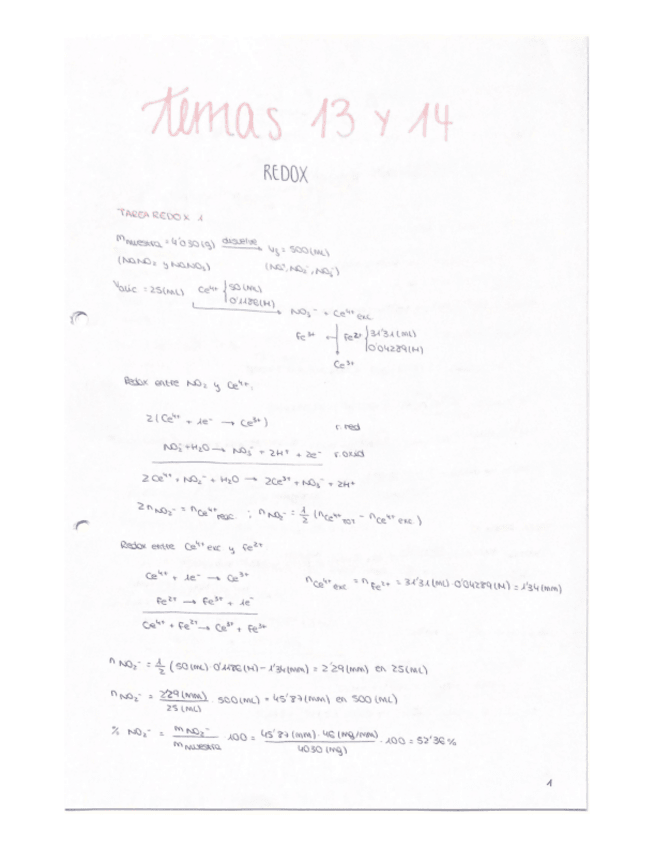 temas 13 y 14
REDOX
TAREA REDOX 1
m muestra = 4'030(g) disuelve → Vf = 500(mL)
(NaNO₂ y NaNO₃) (Na⁺, NO₂⁻, NO₃⁻)
Valic = 25(mL) Ce⁴⁺ 50(mL)
0'1186(M)
NO₃⁻ + Ce⁴⁺ exc
Fe³⁺ ← Fe²⁺ 31'31(mL)
0'04289(M)
Ce³⁺
Redox entre NO₂⁻ y Ce⁴⁺:
2(Ce⁴⁺ + 1e⁻ → Ce³⁺) r. red
NO₂⁻ + H₂O → NO₃⁻ + 2H⁺ + 2e⁻ r. oxid
2Ce⁴⁺ + NO₂⁻ + H₂O → 2Ce³⁺ + NO₃⁻ + 2H⁺
2nNO₂⁻ = nCe⁴⁺ reac ; nNO₂⁻ = 1/2 (nCe⁴⁺ TOT - nCe⁴⁺ exc)
Redox entre Ce⁴⁺ exc y Fe²⁺
Ce⁴⁺ + 1e⁻ → Ce³⁺ nCe⁴⁺ exc = nFe²⁺ = 31'31(mL) · 0'04289(M) = 1'34(mm)
Fe²⁺ → Fe³⁺ + 1e⁻
Ce⁴⁺ + Fe²⁺ → Ce³⁺ + Fe³⁺
nNO₂⁻ = 1/2 (50(mL) · 0'1186(M) - 1'34(mm)) = 2'29(mm) en 25(mL)
nNO₂⁻ = 2'29(mm) / 25(mL) · 500(mL) = 45'87(mm) en 500(mL)
% NO₂⁻ = mNO₂⁻ / m muestra · 100 = 45'87(mm) · 46(mg/mm) / 4030(mg) · 100 = 52'36%
1